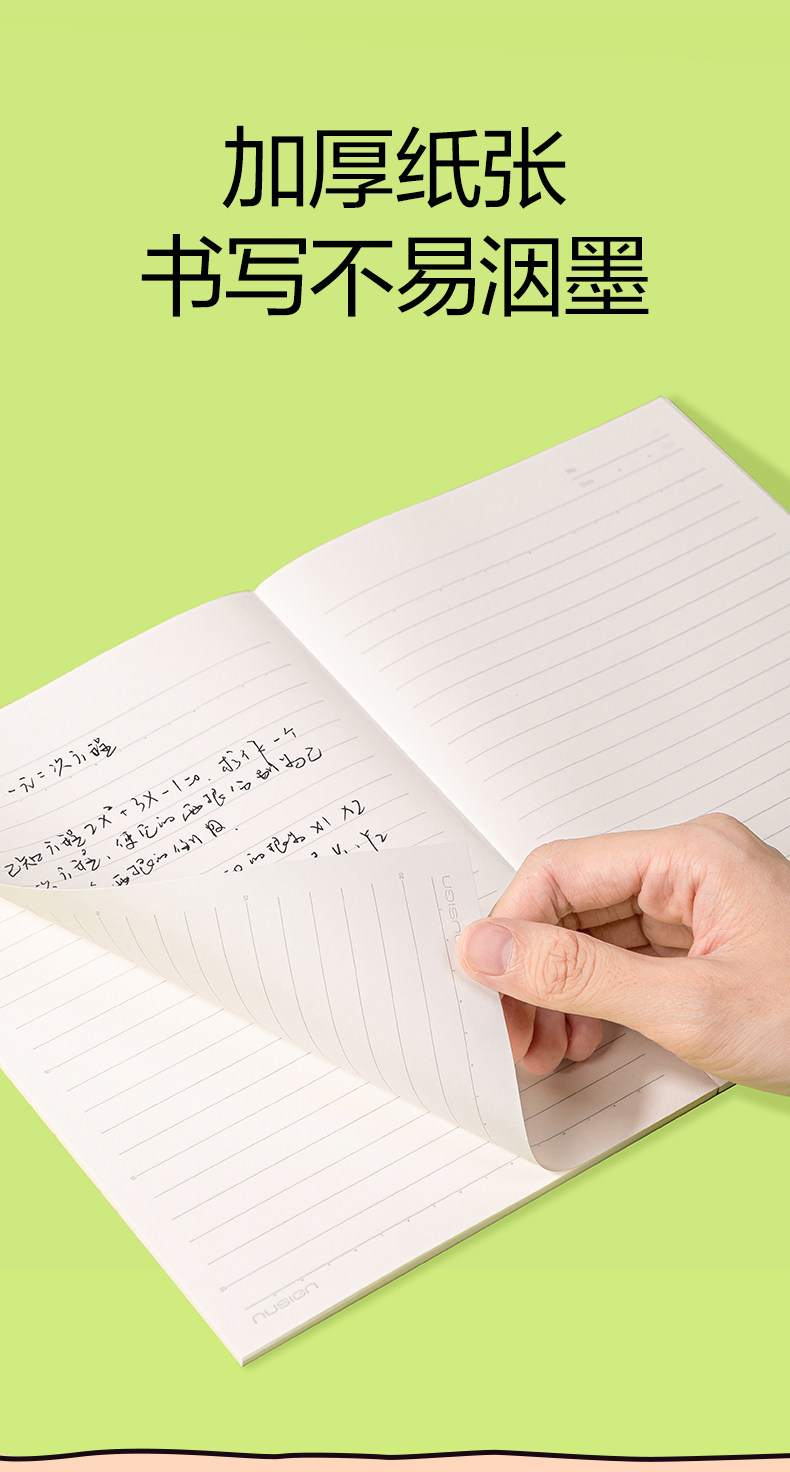 加厚纸张
书写不易洇墨
一元二次方程
已知方程2X²+3X-1=0.求作一个
方程,使它的两根分别为已
两根的倒数.
的根为 X1 X2
NUSIGN
NUSIGN